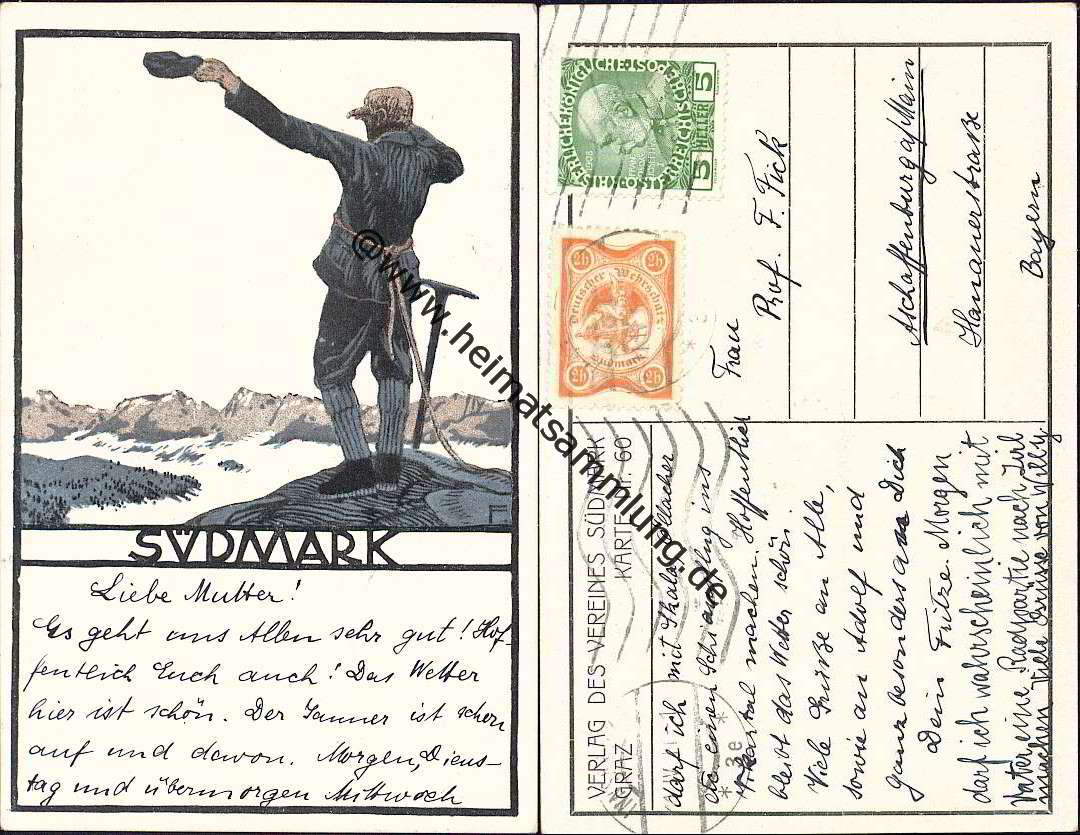 SÜDMARK
Liebe Mutter!
Es geht uns Allen sehr gut! Hof-
fentlich Euch auch! Das Wetter
hier ist schön. Der ist schon
auf und davon. Morgen, Diens-
tag und übermorgen Mittwoch
@www.heimatsammlung.de
5 HELLER 5
1908
KAISERLICHE KÖNIGLICHE ÖSTERREICHISCHE POST
2h 2h
Deutscher Wehrschatz
Südmark
2h 2h
Frau
Prof. F. Fick
Aschaffenburg a/Main
Hanauerstraße
Bayern
VERLAG DES VEREINES SÜDMARK
GRAZ KARTE NR. 60
darf ich mit
einen Schiausflug ins
machen. Hoffentlich
bleibt das Wetter schön.
Viele Grüße an Alle,
sowie an Adolf und
ganz besonders an Dich
Dein Fritze. Morgen
darf ich wahrscheinlich mit
Vater eine Radpartie nach Zirl
machen. Viele Grüsse von Wally.